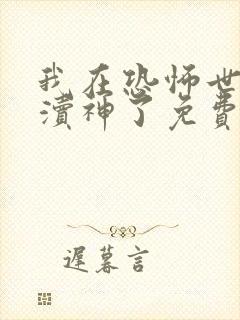 我在恐怖世
渎神了免费
遲暮言